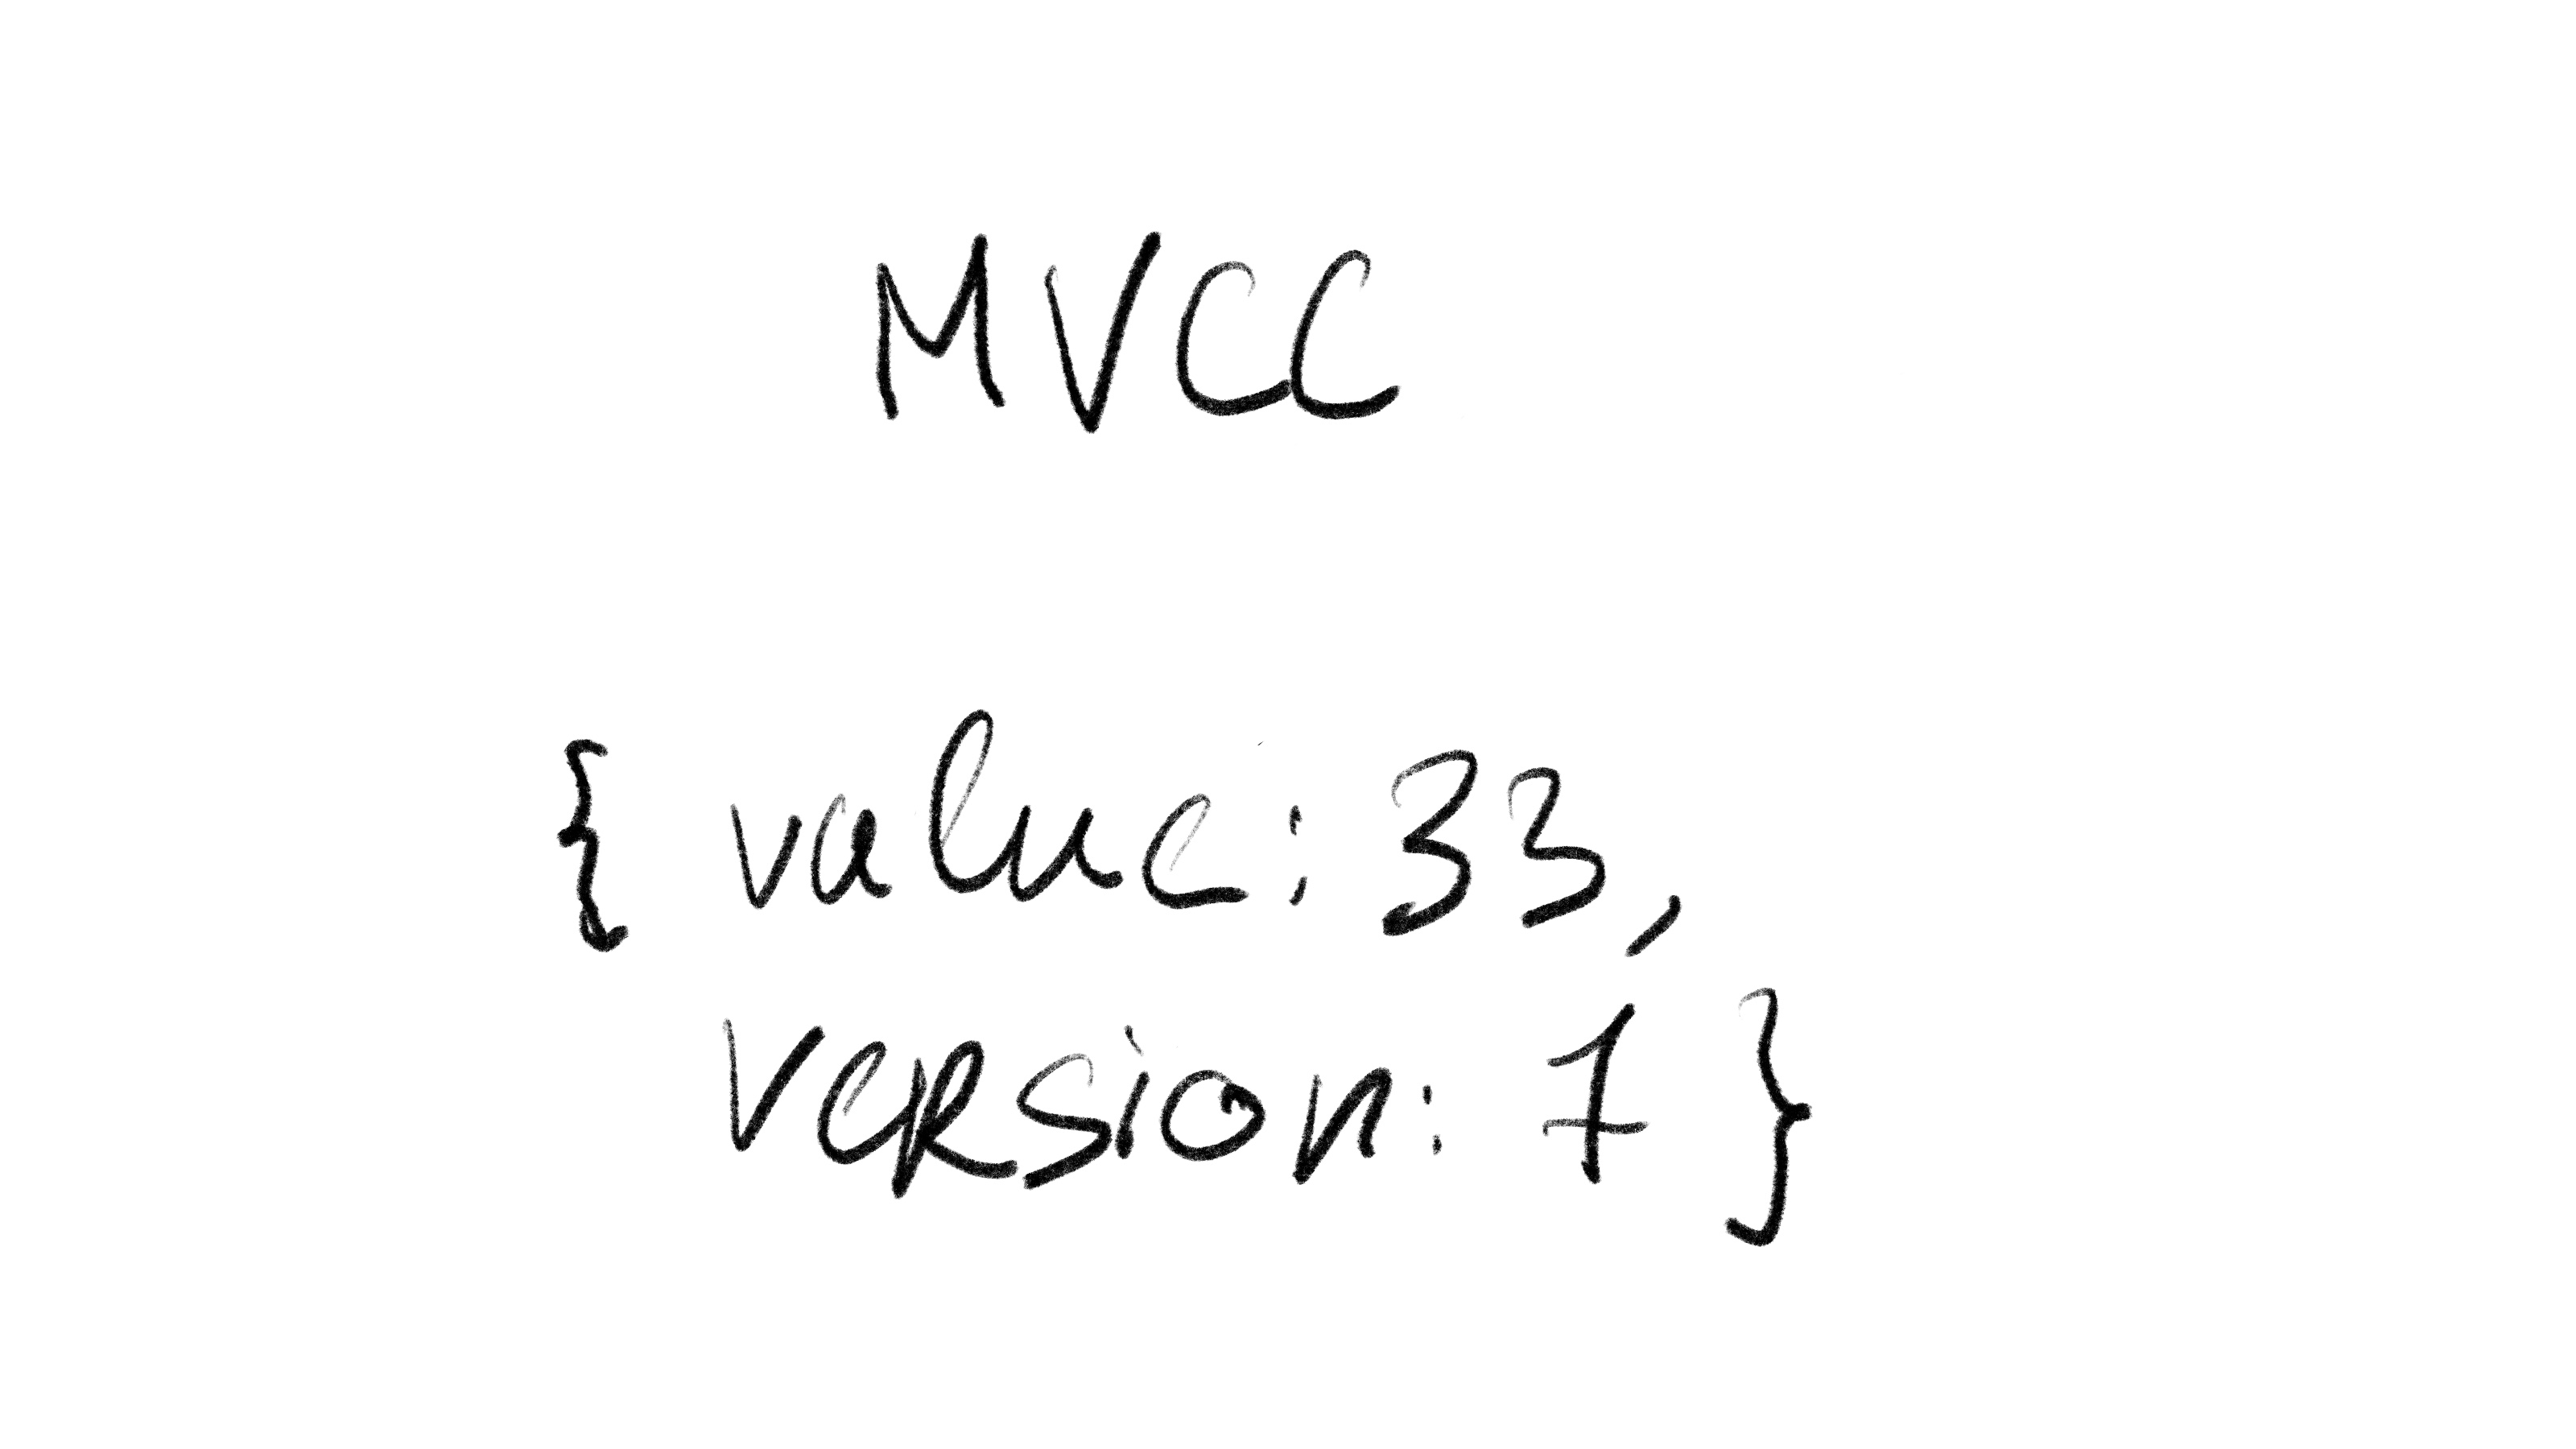 MVCC
{ value: 33,
version: 7 }